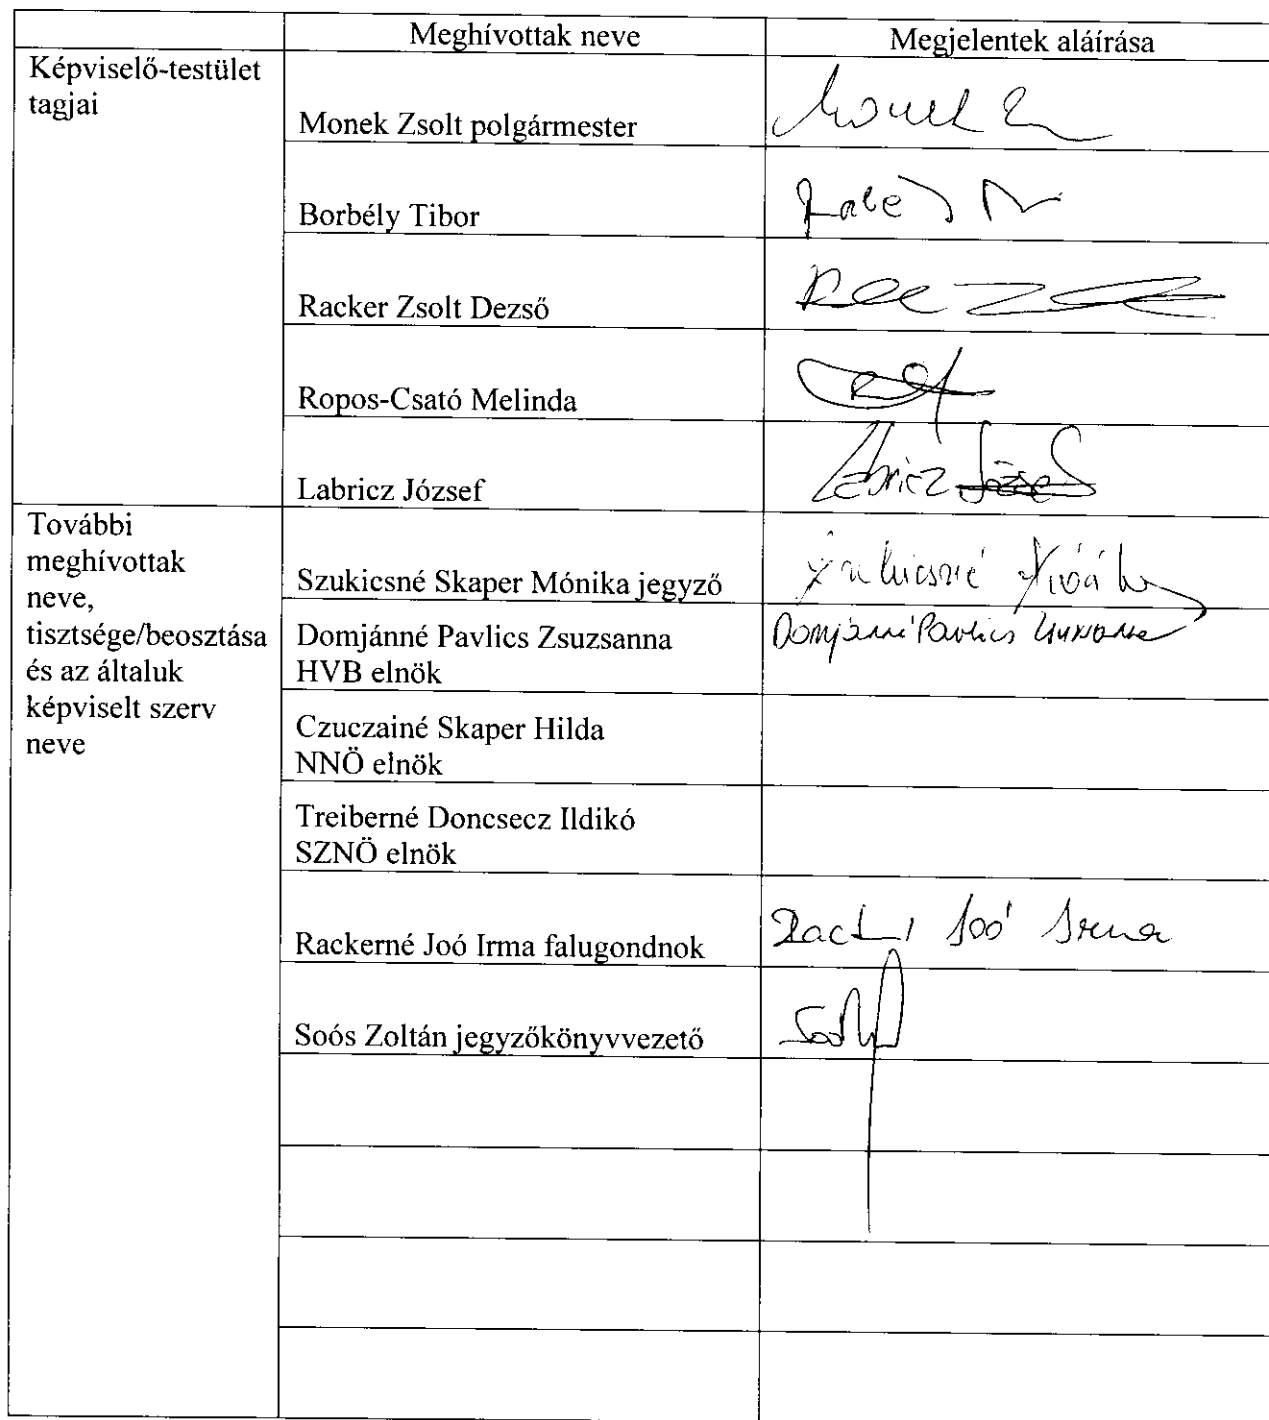 Meghívottak neve
Megjelentek aláírása
Képviselő-testület
tagjai
Monek Zsolt polgármester
Borbély Tibor
Racker Zsolt Dezső
Ropos-Csató Melinda
Labricz József
Labricz József
További
meghívottak
neve,
tisztsége/beosztása
és az általuk
képviselt szerv
neve
Szukicsné Skaper Mónika jegyző
Domjánné Pavlics Zsuzsanna
HVB elnök
Domjánné Pavlics Zsuzsanna
Czuczainé Skaper Hilda
NNÖ elnök
Treiberné Doncsecz Ildikó
SZNÖ elnök
Rackerné Joó Irma falugondnok
Joó Irma
Soós Zoltán jegyzőkönyvvezető